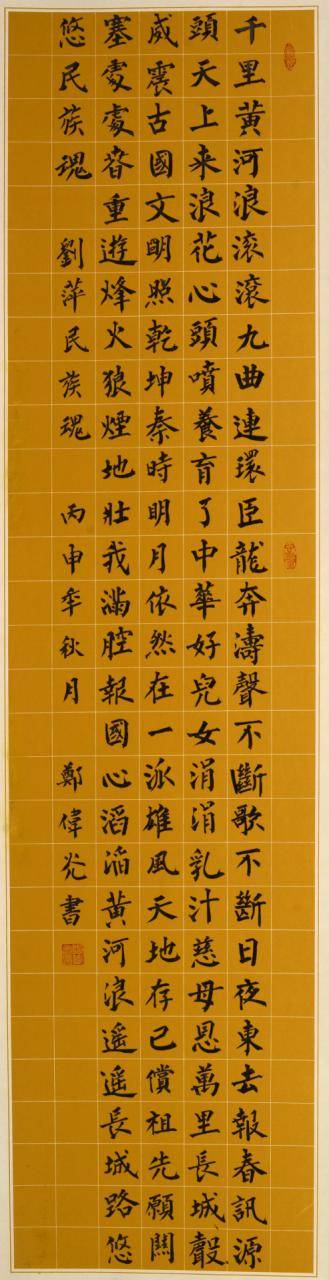 千里黄河浪滚滾九曲連環臣龍奔濤聲不斷歌不斷日夜東去報春訊源
頭天上来浪花心頭噴養育了中華好兒女涓涓乳汁慈母恩萬里長城毄
威震古國文明照乾坤秦時明月依然在一派雄風天地存已償祖先願關
塞處處春重遊烽火狼煙地壯我滿腔報國心滔滔黄河浪遥遥長城路悠
悠民族魂 劉萍民族魂 丙申年秋月 鄭偉光書